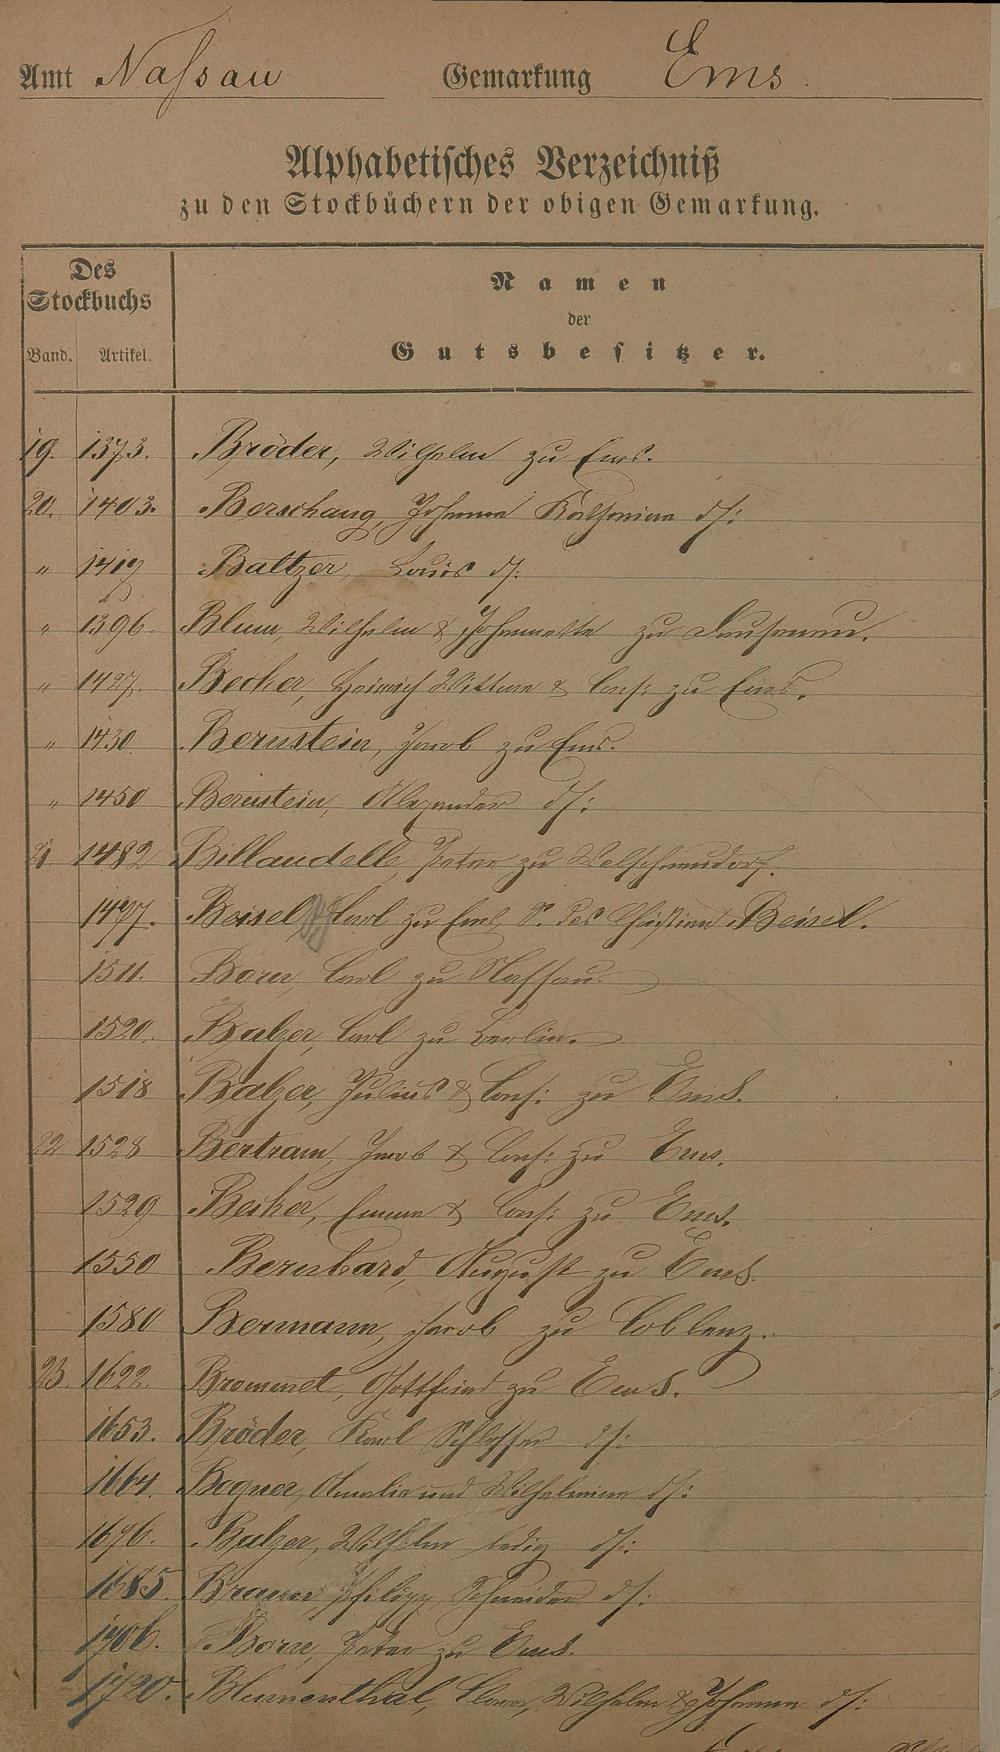 Amt Nassau Gemarkung Ems
Alphabetisches Verzeichniß
zu den Stockbüchern der obigen Gemarkung.
Des Stockbuchs
Namen
der
Gutsbesitzer.
Band. Artikel.
19. 1373. Bröder, Wilhelm zu Ems.
20. 1403. Berschang, Johanna Katharina ds:
" 1419 Baltzer, Louis ds:
" 1396. Blum, Wilhelm & Johannette zu Dausenau.
" 1427. Becker, Heinrich Wittwe & Cons: zu Ems.
" 1430. Bernstein, Jacob zu Ems.
" 1450 Bernstein, Alexander ds:
21 1482 Billaudelle, Peter zu Welschneudorf.
1497. Beisel, Carl zu Ems, S. des Christian Beisel.
1511. Born, Carl zu Nassau.
1520. Balzer, Carl zu Berlin.
1518 Balzer, Julius & Cons: zu Ems.
22 1528 Bertram, Jacob & Cons: zu Ems.
1529 Becker, Emma & Cons: zu Ems.
1550 Bernhard, August zu Ems.
1580 Bermann, Jacob zu Coblenz.
23. 1622. Brommet, Gottfried zu Ems.
1653. Bröder, Karl Schlosser ds:
1664. Bogner, Amalie und Wilhelmine ds:
1676. Balzer, Wilhelm ledig ds:
1685. Braun, Philipp, Schneider ds:
1706. Born, Peter zu Ems.
1720. Blumenthal, Wilhelm & Johanna ds: